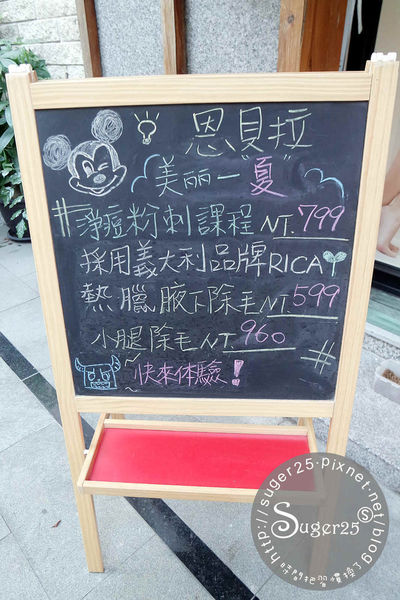 恩貝拉
美丽一"夏"
淨痘粉刺課程 NT.799
採用義大利品牌RICA
熱臘腋下除毛 NT.599
小腿除毛 NT.960
快來体驗!
http://suger25.pixnet.net/blog
Suger25
時間把習慣換了